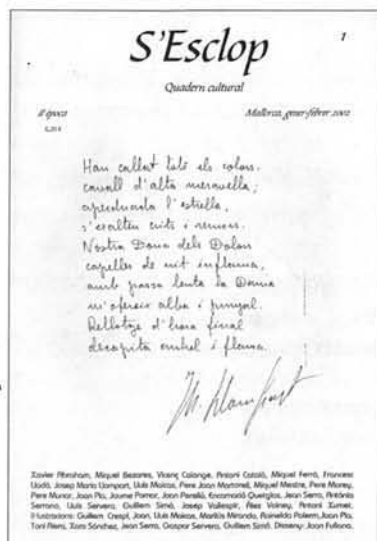 S'Esclop
1
Quadern cultural
II època
Mallorca, gener-febrer 2002
Han callat tots els colors.
cavall d'alta meravella;
s'exalten crits i remors.
Nostra Dona dels Dolors
capelles de nit inflama,
amb passa lenta la Dama
m'ofereix alba i punyal.
Rellotge d'hora final
decapita i flama.
Xavier Abraham, Miquel Bezares, Vicenç Calonge, Antoni Català, Miquel Ferrà, Francesc
Lladó, Josep Maria Llompart, Lluís Maicas, Pere Joan Martorell, Miquel Mestre, Pere Morey,
Pere Munar, Joan Pla, Jaume Pomar, Joan Perelló, Encarnació Querglas, Jean Serra, Antònia
Serrano, Lluís Servera, Guillem Simó, Josep Vallespir, Àlex Volney, Antoni Xumet.
Il·lustracions: Guillem Crespí, Joan, Lluís Maicas, Maritxis Miranda, Rainelda Palerm, Joan Pla,
Toni Riera, Xam Sánchez, Jean Serra, Gaspar Servera, Guillem Simó. Disseny: Joan Fullana.